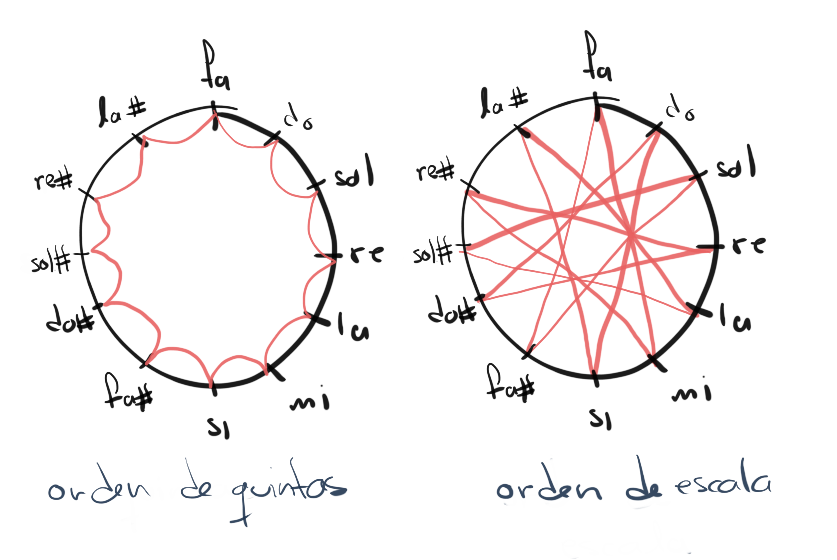 fa
do
sol
re
la
mi
si
fa#
do#
sol#
re#
la#
orden de quintas
fa
do
sol
re
la
mi
si
fa#
do#
sol#
re#
la#
orden de escala